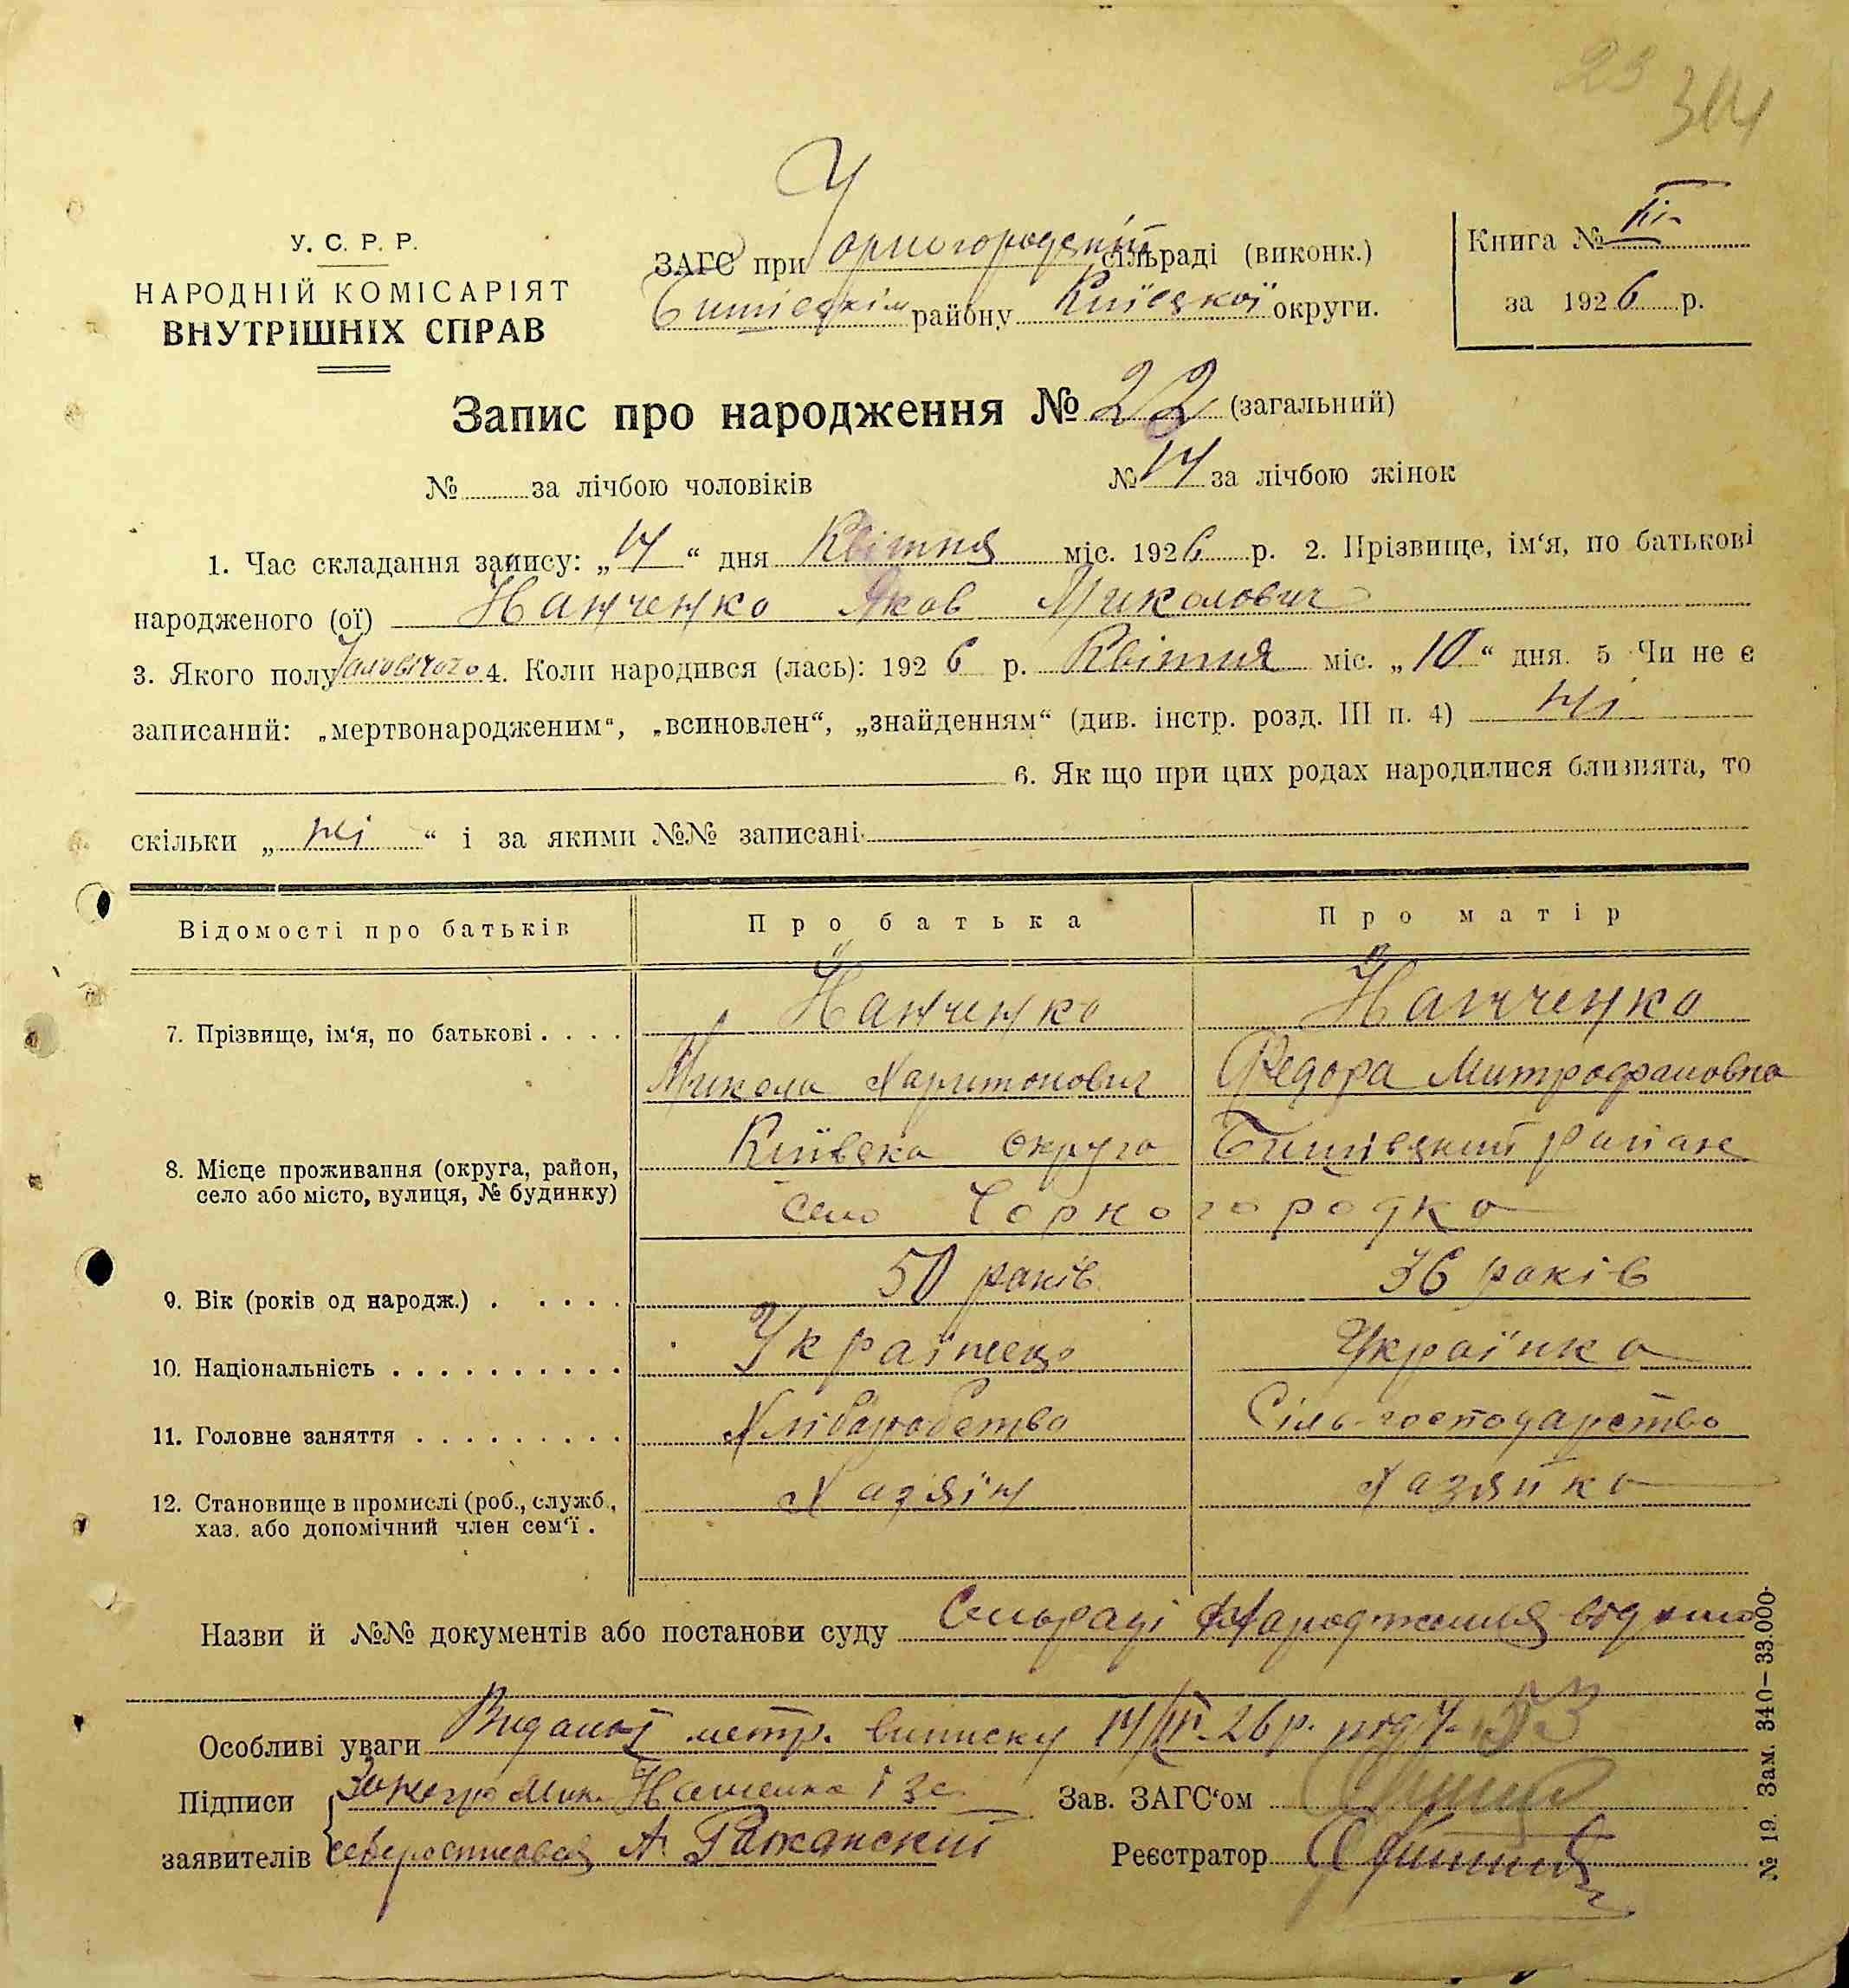 23
314
У. С. Р. Р.
НАРОДНІЙ КОМІСАРІЯТ
ВНУТРІШНІХ СПРАВ
ЗАГС при Чорногородській сільраді (виконк.)
району Київської округи.
Книга № III
за 1926 р.
Запис про народження № 22 (загальний)
№ за лічбою чоловіків
№ 14 за лічбою жінок
1. Час складання запису: „14“ дня Квітня міс. 1926 р. 2. Прізвище, ім‘я, по батькові
народженого (ої) Нанченко Яков Миколович
3. Якого полу Чоловічого 4. Коли народився (лась): 1926 р. Квітня міс. „10“ дня. 5 Чи не є
записаний: „мертвонародженим“, „всиновлен“, „знайденням“ (див. інстр. розд. III п. 4) ні
6. Як що при цих родах народилися близнята, то
скільки „ ні “ і за якими №№ записані
Відомості про батьків
Про батька
Про матір
7. Прізвище, ім‘я, по батькові
Нанченко
Нанченко
Микола Харитонович
Федора Митрофановна
8. Місце проживання (округа, район,
село або місто, вулиця, № будинку)
Київска округа Бишівський район
село Чорногородка
9. Вік (років од народж.)
50 років
36 років
10. Національність
Українець
Українка
11. Головне заняття
Хліборобство
Сіль-господарство
12. Становище в промислі (роб., служб.,
хаз. або допомічний член сем‘ї
Хазяїн
Хазяйка
Назви й №№ документів або постанови суду Сильраді Народження
Особливі уваги метр. виписку 14/IV-26 р. під Ч. 53
Підписи
заявителів А. Ражанский
Зав. ЗАГС‘ом
Реєстратор
№ 19. Зам. 340—33.000.